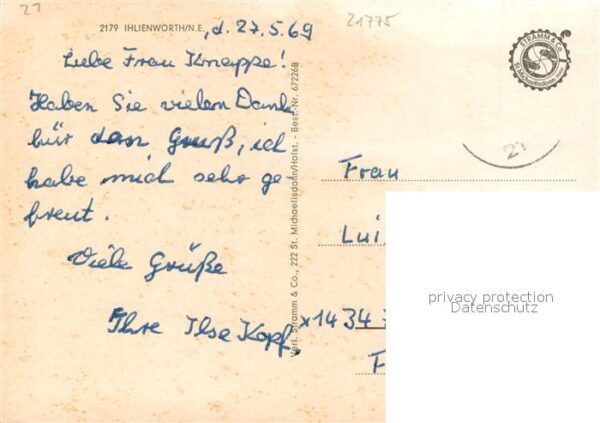 21
21775
2179 IHLIENWORTH/N.E. ,d. 27.5.69
Liebe Frau Knappe!
Haben Sie vielen Dank
für den Gruß, ich
habe mich sehr ge
freut.
Viele Grüße
Ihre Ilse Kopf.
Verl. Stramm & Co., 222 St. Michaelisdonn/Holst. - Best.-Nr. 67226B
STRAMM & CO.
St. Michaelisdonn
21
Frau
Lui
x1434
F
privacy protection
Datenschutz